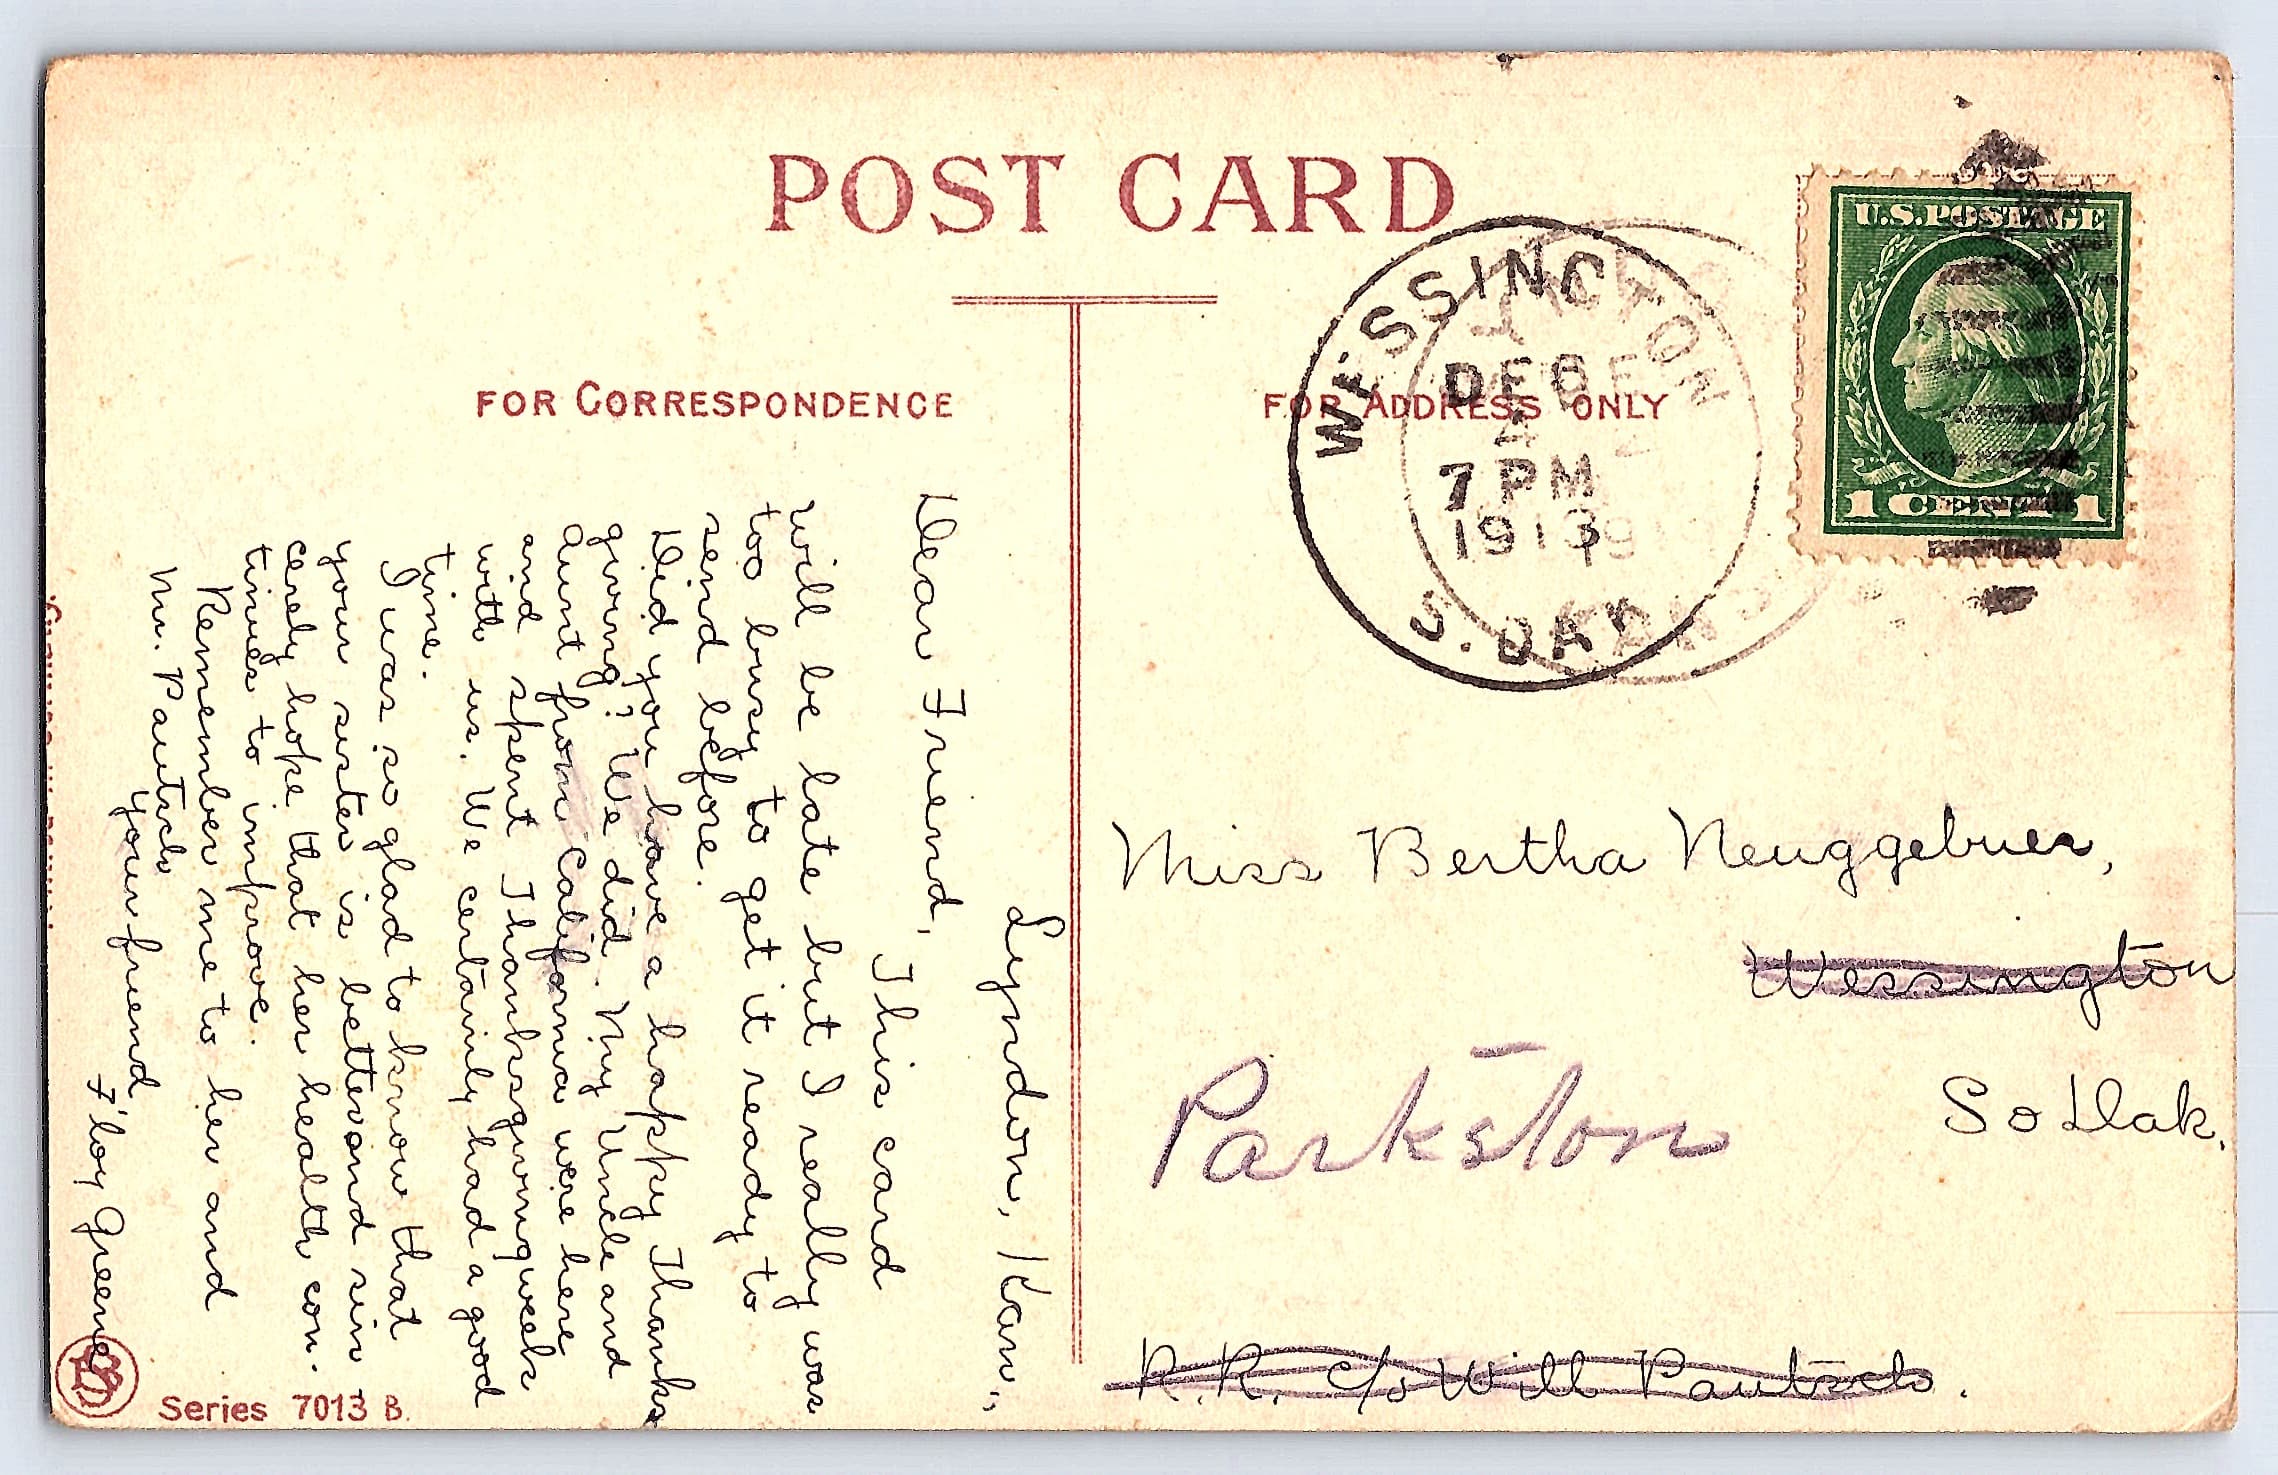 POST CARD
FOR CORRESPONDENCE
FOR ADDRESS ONLY
U.S.POSTAGE
1 CENT 1
WESSINGTON
DEC
4
7 PM
1913
S. DAK
Lyndon, Kan.,
Dear Friend,
This card
will be late but I really was
too busy to get it ready to
send before.
Did you have a happy Thanks
giving? We did. My Uncle and
Aunt from California were here
and spent Thanksgiving week
with us. We certainly had a good
time.
I was so glad to know that
your sister is better and sin
cerely hope that her health con-
tinues to improve.
Remember me to her and
Mr. Pautsch
Your friend
F'loy Greene
Miss Bertha Neuggebuer,
Wessington
So Dak.
Parkston
R.R. c/o Will Pautsch.
Series 7013 B.